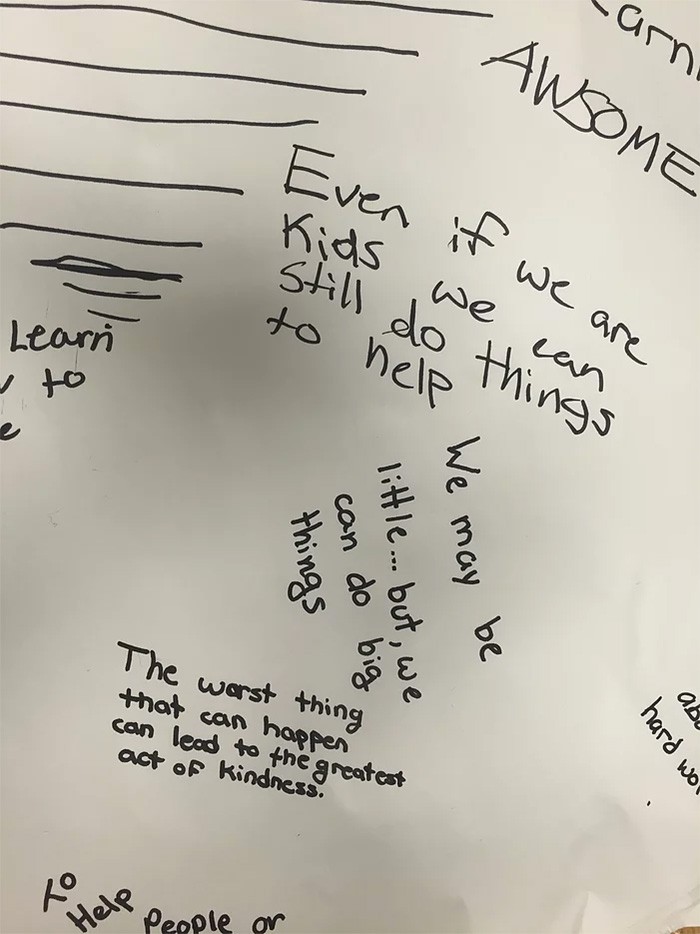 AWSOME
Even if we are
Kids we can
still do things
to help
Learn
to
We may be
little... but, we
can do big
things
The worst thing
that can happen
can lead to the greatest
act of kindness.
hard
To
Help People or